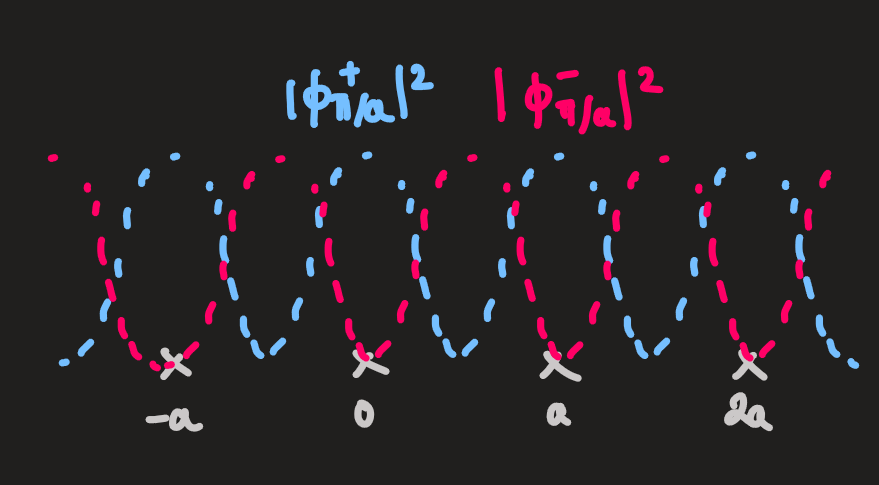 |ϕ⁺π/a|² |ϕ⁻π/a|²
-a 0 a 2a